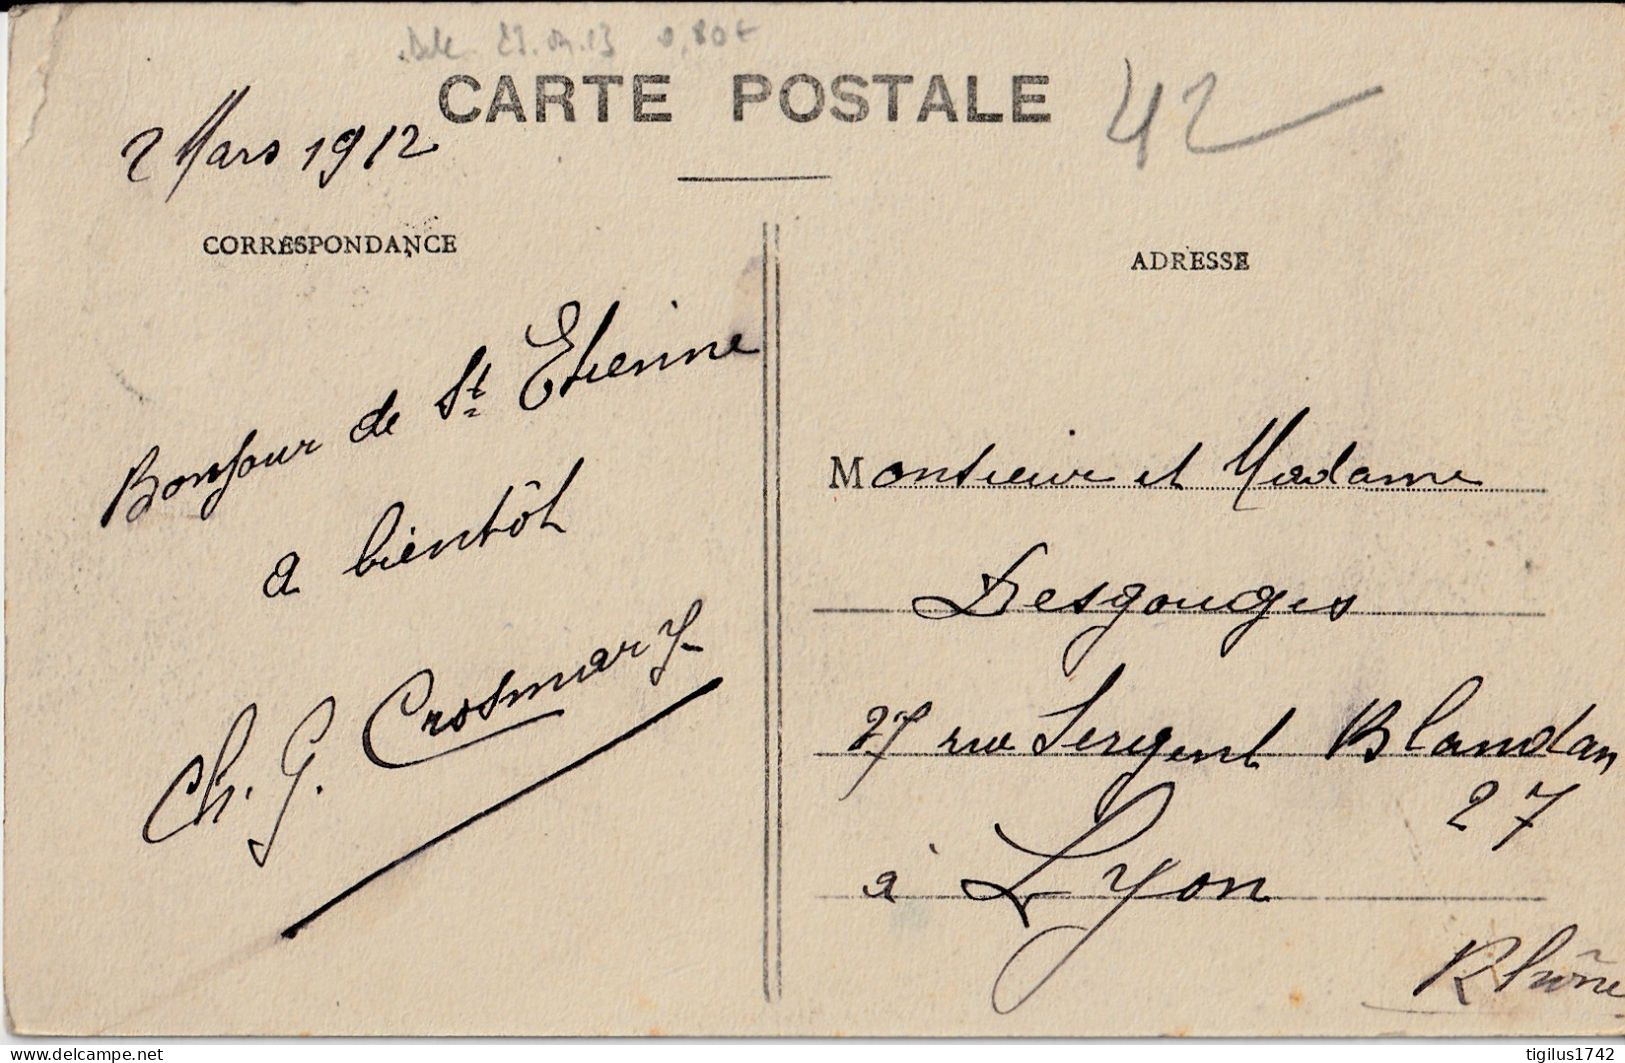 CARTE POSTALE
42
2 Mars 1912
CORRESPONDANCE
Bonjour de St Etienne
a bientôt
Ch. G. Crosmary
ADRESSE
Monsieur et Madame
Desgouges
27 rue Sergent Blandan
27
à Lyon
Rhône
delcampe.net
tigilus1742